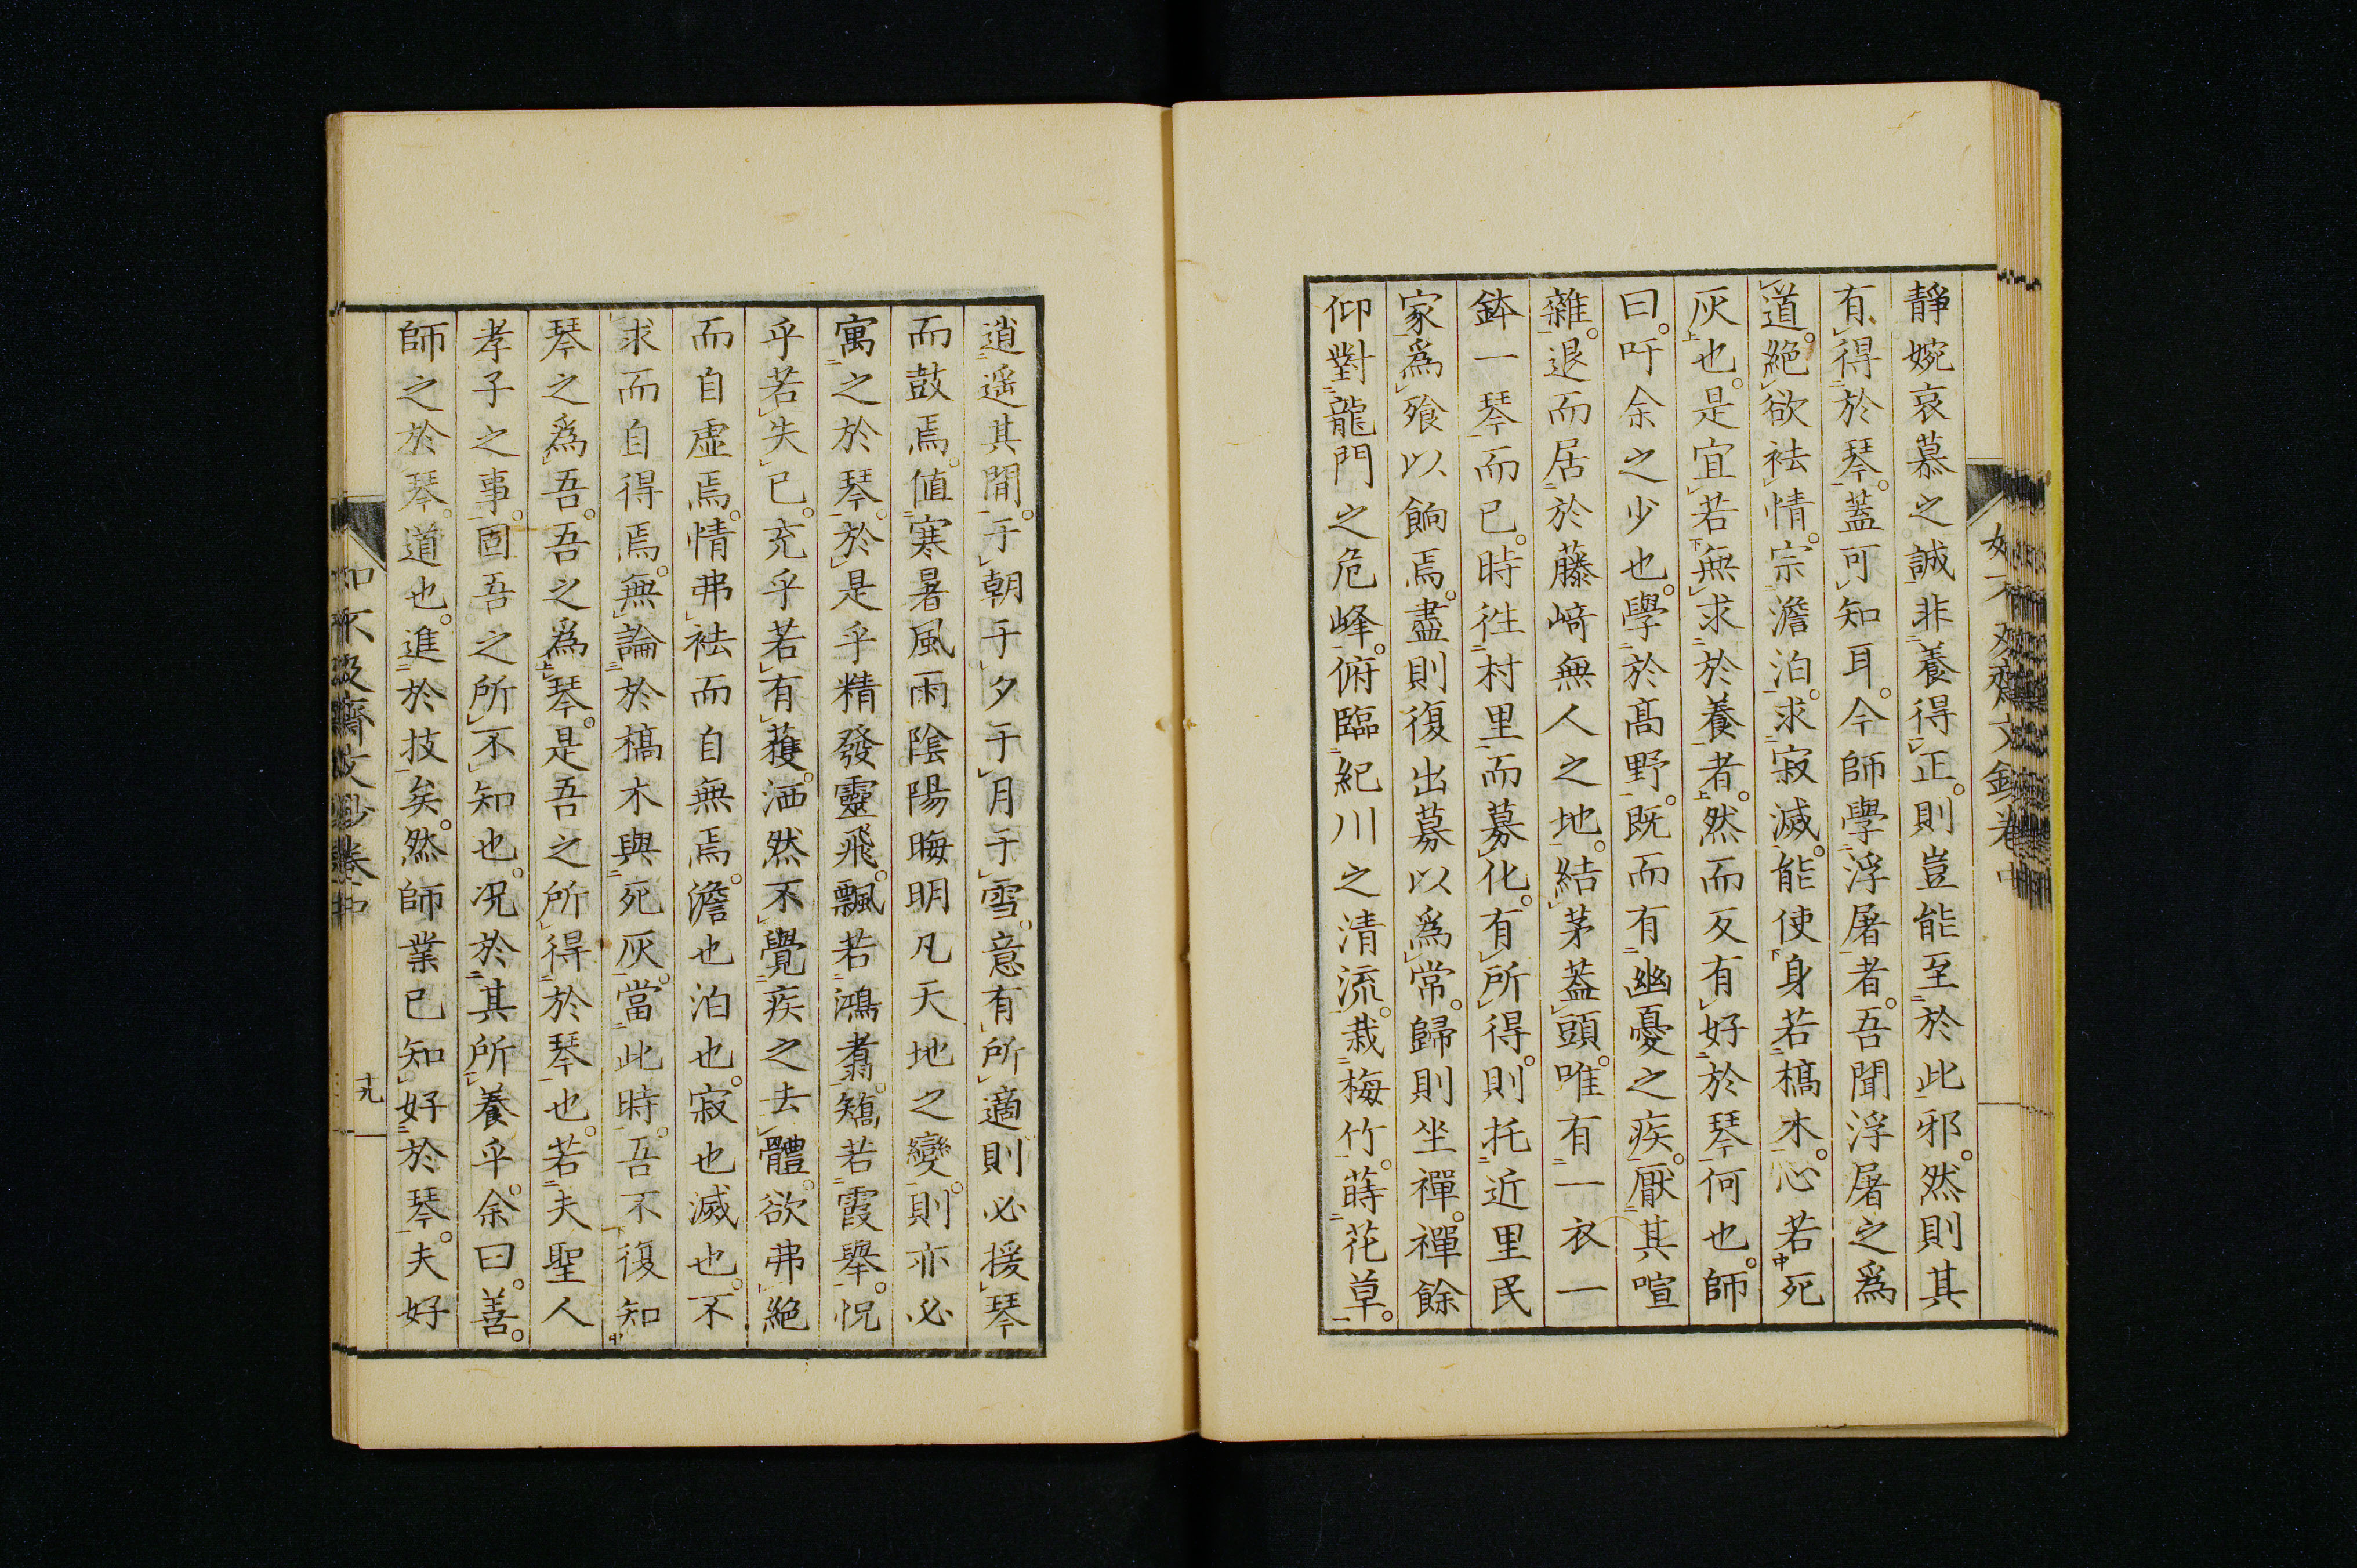 靜婉哀慕之誠非養得正則豈能至於此邪然則其
有得於琴蓋可知耳今師學浮屠者吾聞浮屠之爲
道絕欲祛情宗澹泊求寂滅能使身若槁木心若死
灰也是宜若無求於養者然而反有好於琴何也師
曰吁余之少也學於高野既而有幽憂之疾厭其喧
雜退而居於藤﨑無人之地結茅蓋頭唯有一衣一
鉢一琴而已時往村里而募化有所得則托近里民
家爲飧以餉焉盡則復出募以爲常歸則坐禪禪餘
仰對龍門之危峰俯臨紀川之清流栽梅竹蒔花草
逍遙其間于朝于夕于月于雪意有所適則必援琴
而鼓焉値寒暑風雨陰陽晦明凡天地之變則亦必
寓之於琴於是乎精發靈飛飄若鴻翥矯若霞擧怳
乎若失已充乎若有獲洒然不覺疾之去體欲弗絕
而自虛焉情弗祛而自無焉澹也泊也寂也滅也不
求而自得焉無論於槁木與死灰當此時吾不復知
琴之爲吾吾之爲琴是吾之所得於琴也若夫聖人
孝子之事固吾之所不知也況於其所養乎余曰善
師之於琴道也進於技矣然師業已知好於琴夫好
如不及齋文鈔卷中
十九